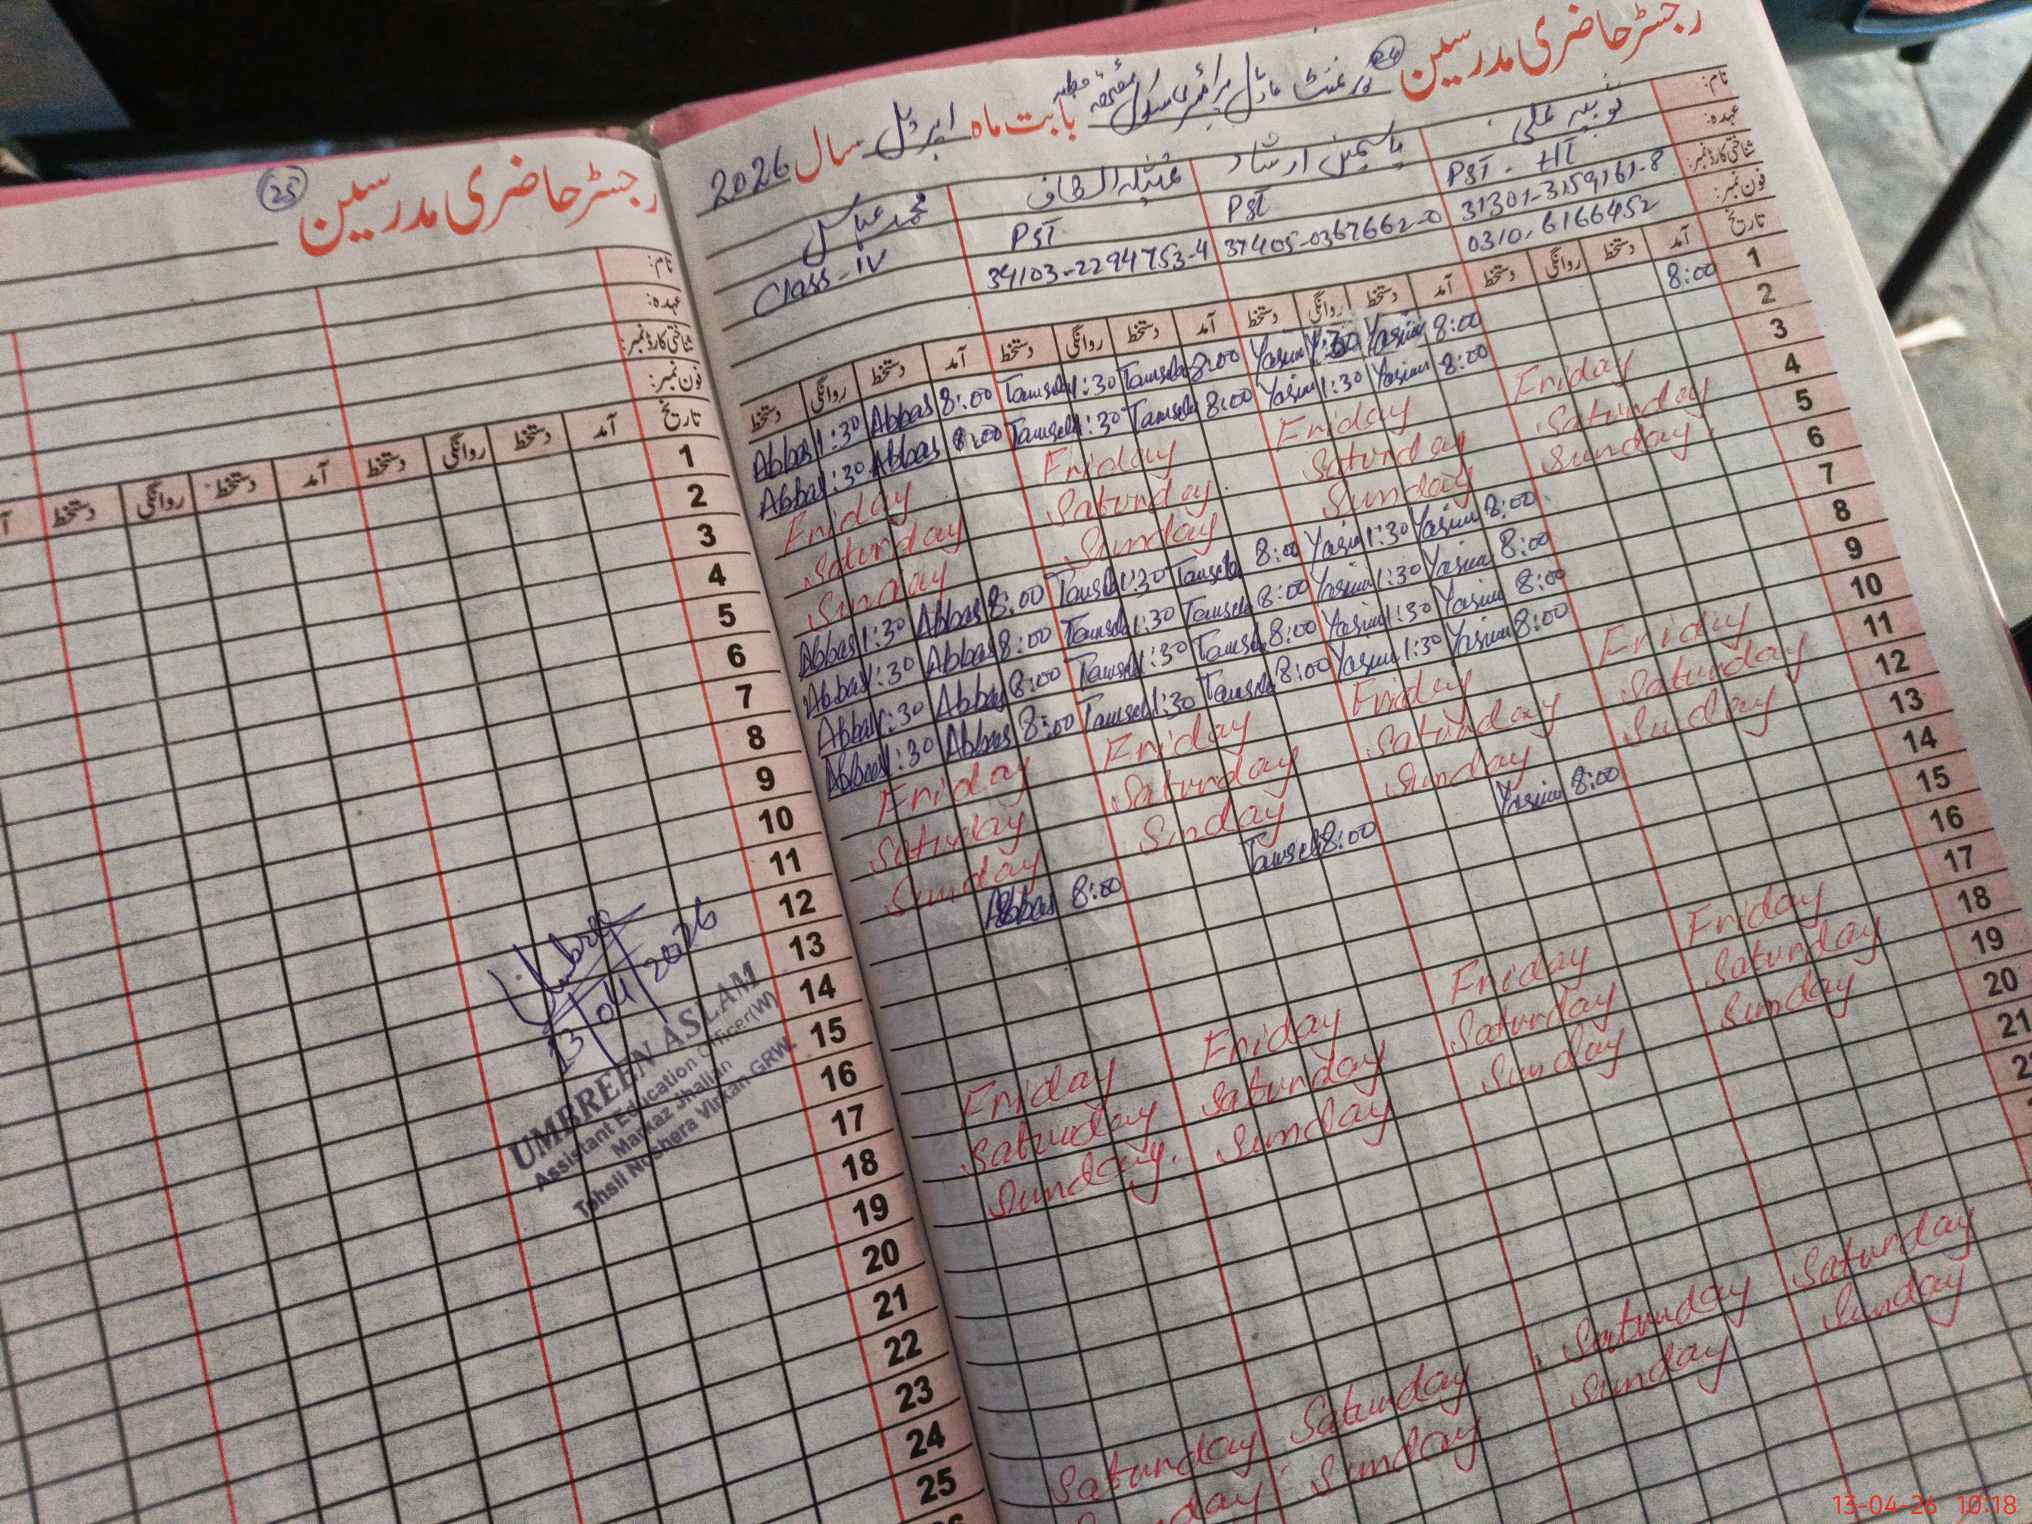 رجسٹر حاضری مدرسین (25)
نام:
عہدہ:
شناختی کارڈ نمبر:
فون نمبر:
تاریخ آمد دستخط روانگی دستخط آمد دستخط روانگی دستخط
1
2
3
4
5
6
7
8
9
10
11
12
13
14
15
16
17
18
19
20
21
22
23
24
25
13/04/2026
UMBREEN ASLAM
Assistant Education Officer(W)
Markaz Jhallan
Tehsil Noshera Virkan GRW.
رجسٹر حاضری مدرسین گورنمنٹ ماڈل پرائمری سکول بابت ماہ اپریل سال 2026
نام: ثوبیہ علی یاسمین ارشاد محمد عباس
عہدہ: PST - HT PST PST Class-IV
شناختی کارڈ نمبر: 31301-3159161-8 37405-0367662-0 34103-2294753-4
فون نمبر: 0310-6166452
تاریخ آمد دستخط روانگی دستخط آمد دستخط روانگی دستخط آمد دستخط روانگی دستخط آمد دستخط روانگی دستخط
1 8:00 8:00 Yasmin 1:30 Yasmin 8:00 1:30 8:00 Abbas 1:30 Abbas
2 8:00 Yasmin 1:30 Yasmin 8:00 1:30 8:00 Abbas 1:30 Abbas
3 Friday Friday Friday Friday
4 Saturday Saturday Saturday Saturday
5 Sunday Sunday Sunday Sunday
6 8:00 Yasmin 1:30 Yasmin 8:00 1:30 8:00 Abbas 1:30 Abbas
7 8:00 Yasmin 1:30 Yasmin 8:00 1:30 8:00 Abbas 1:30 Abbas
8 8:00 Yasmin 1:30 Yasmin 8:00 1:30 8:00 Abbas 1:30 Abbas
9 8:00 Yasmin 1:30 Yasmin 8:00 1:30 8:00 Abbas 1:30 Abbas
10 Friday Friday Friday Friday
11 Saturday Saturday Saturday Saturday
12 Sunday Sunday Sunday Sunday
13 8:00 Yasmin 8:00 8:00 Abbas
14
15
16
17 Friday Friday Friday Friday
18 Saturday Saturday Saturday Saturday
19 Sunday Sunday Sunday Sunday
20
21
Saturday Saturday Saturday Saturday
Sunday Sunday Sunday
13-04-26 10:18